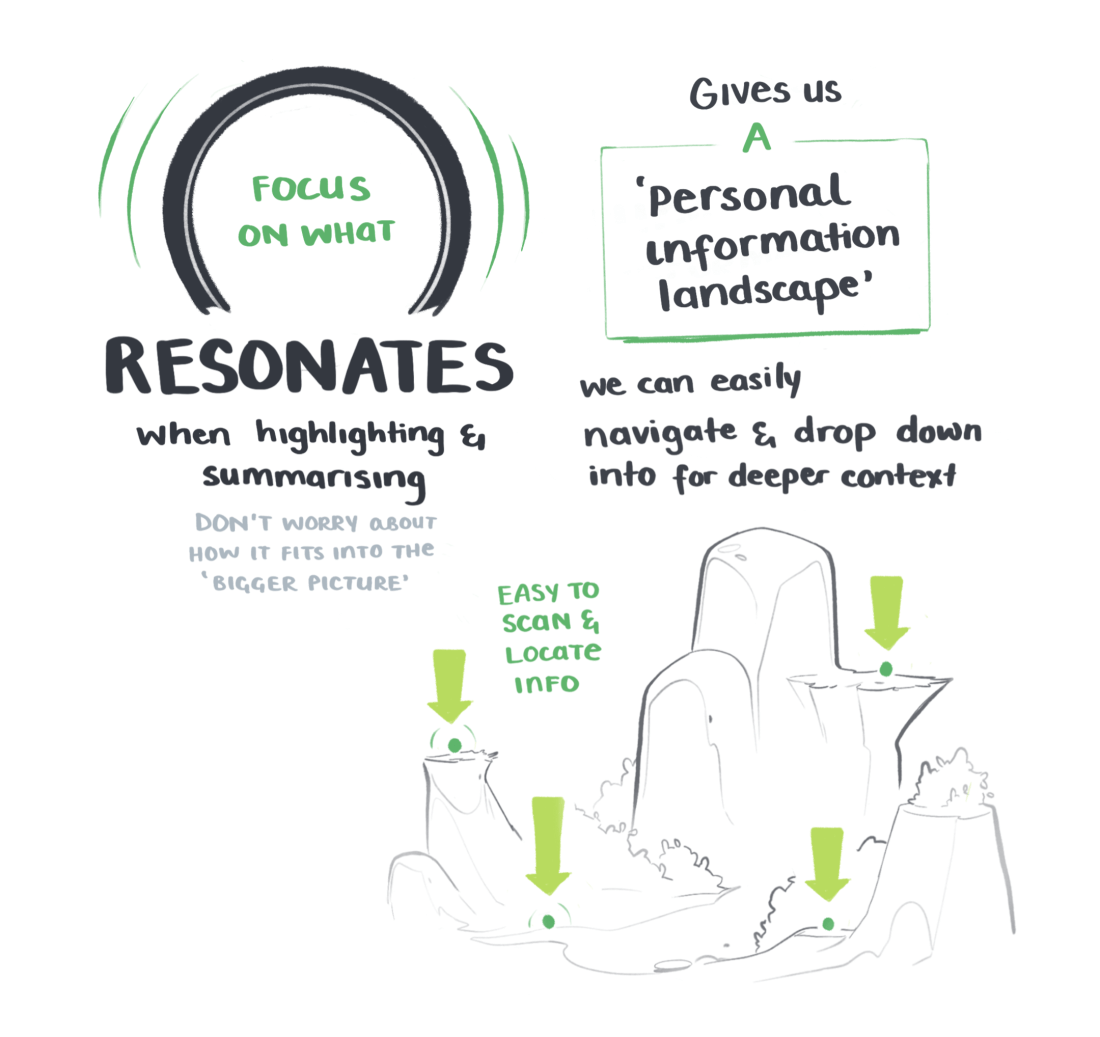 FOCUS
ON WHAT
RESONATES
when highlighting &
summarising
DON'T WORRY ABOUT
HOW IT FITS INTO THE
'BIGGER PICTURE'
Gives us
A
'personal
information
landscape'
we can easily
navigate & drop down
into for deeper context
EASY TO
SCAN &
LOCATE
INFO